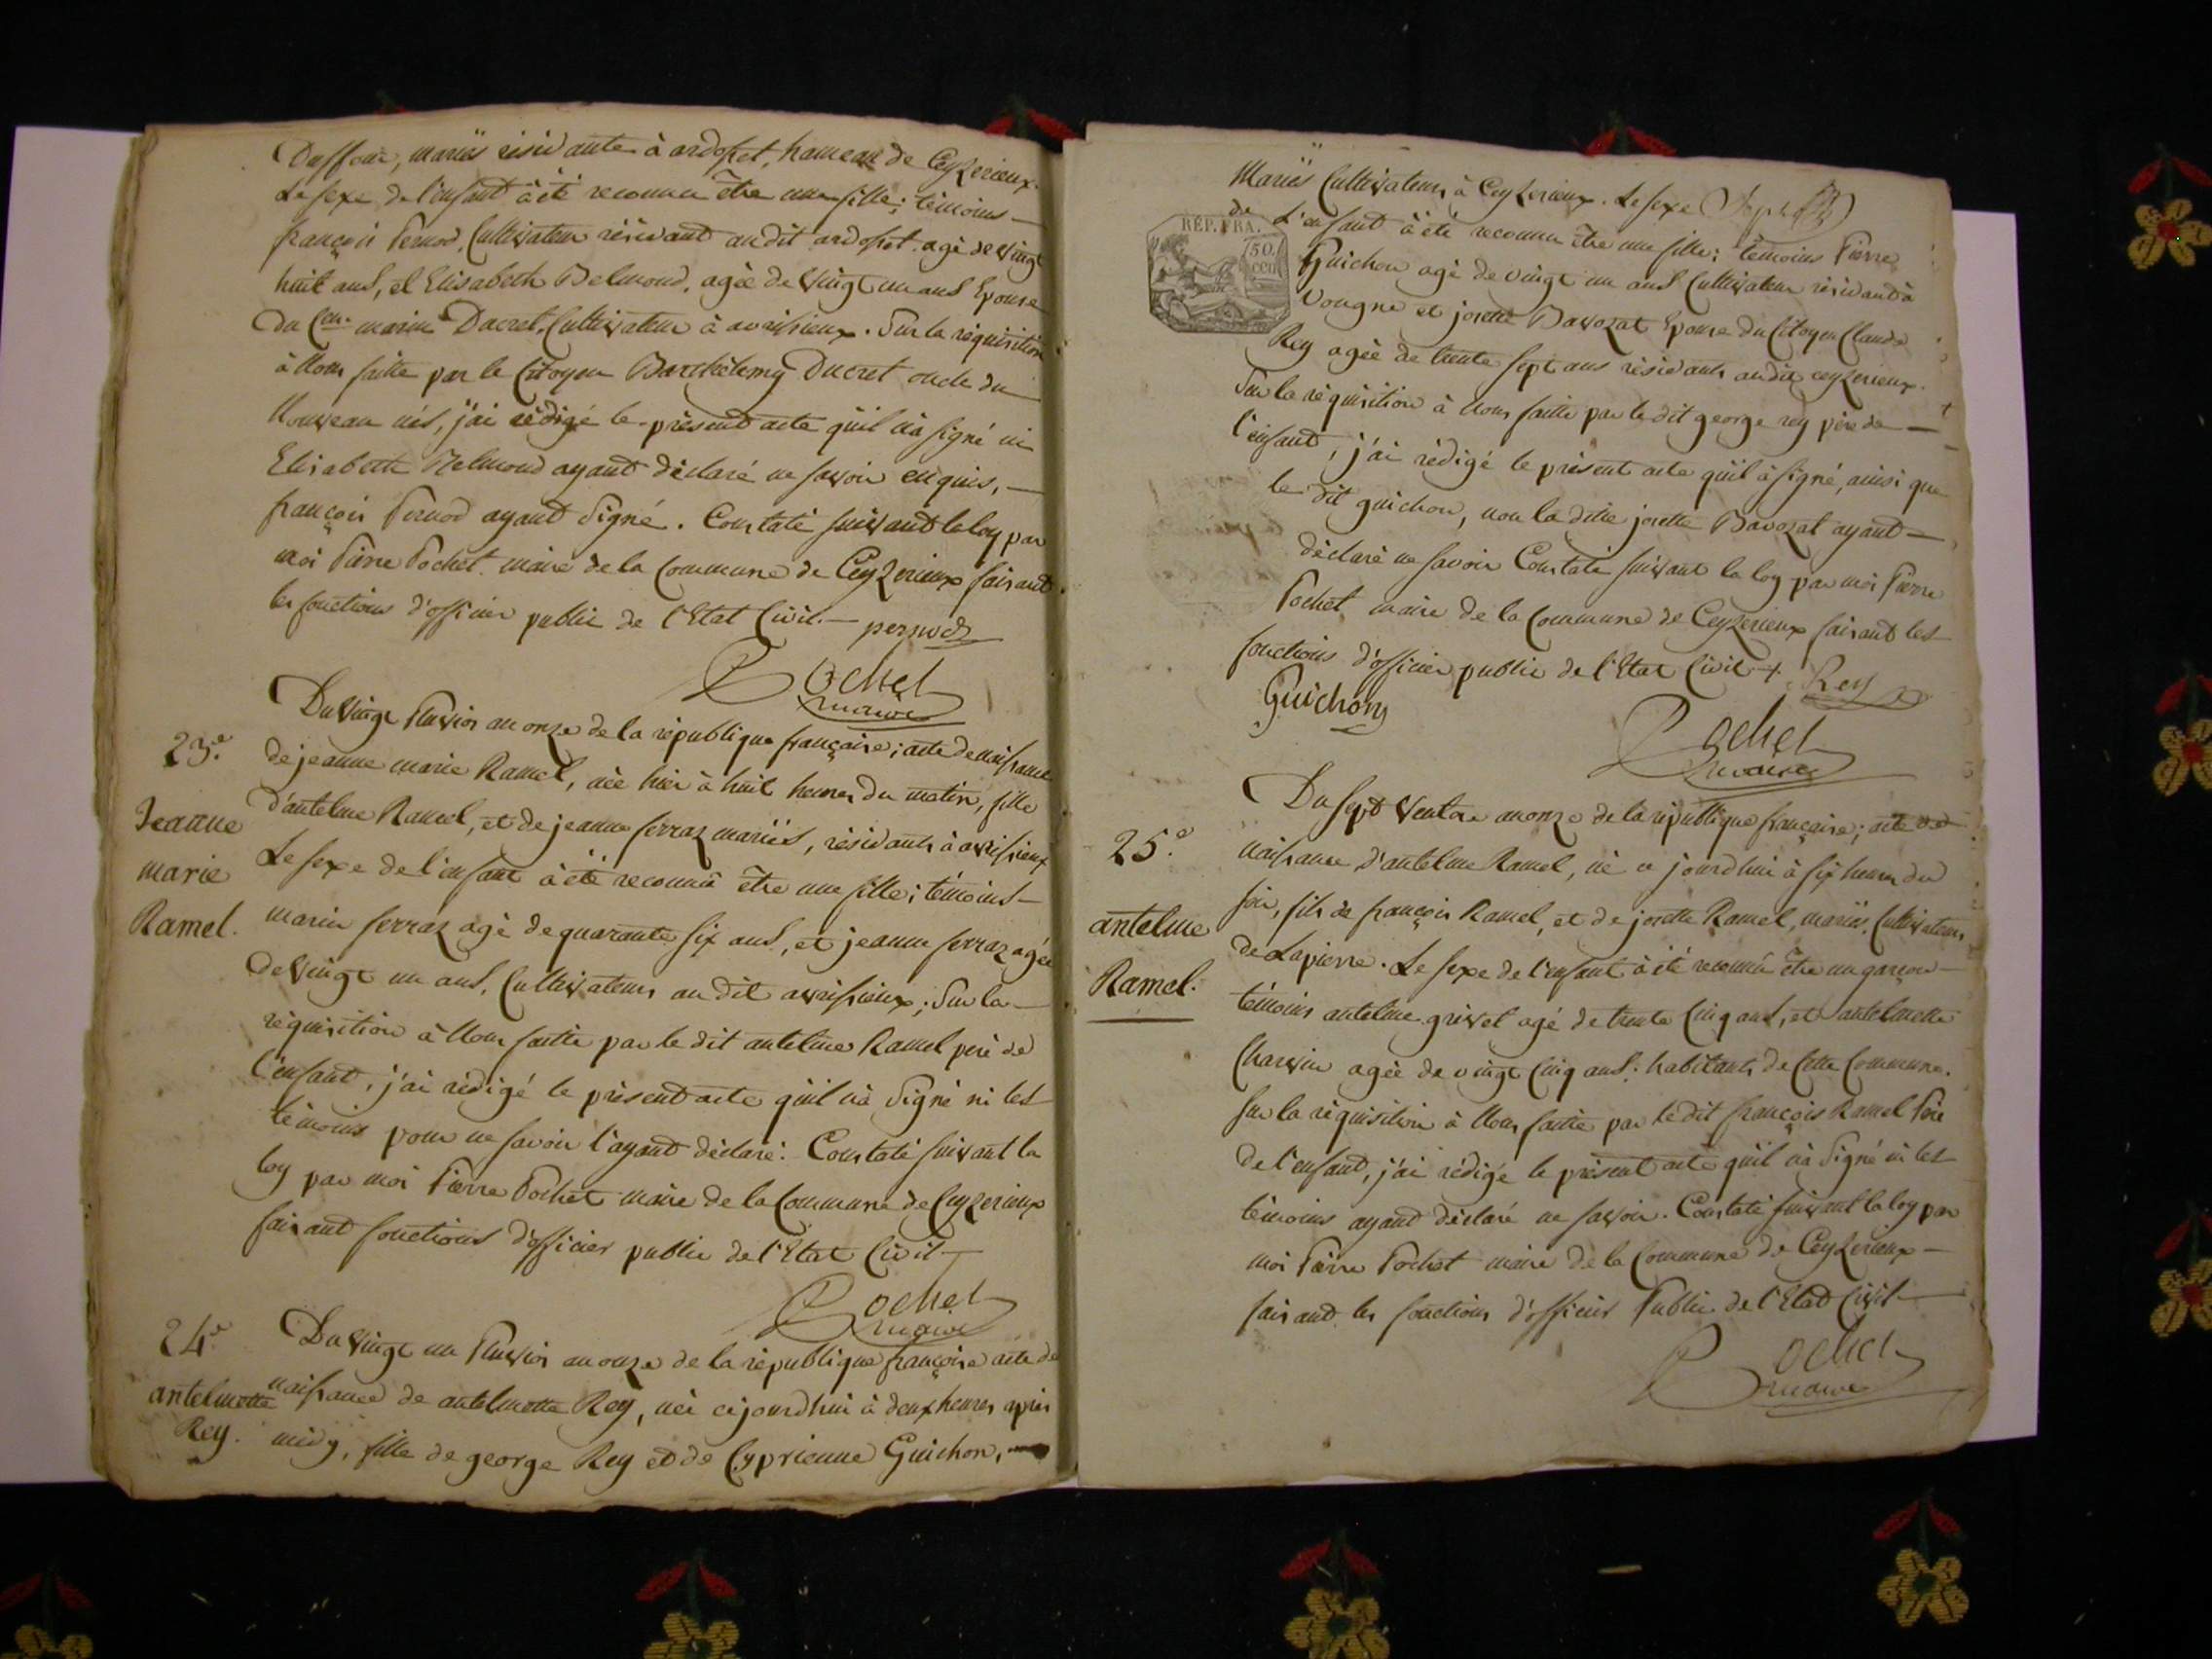 Duffour, mariés résidants à ardosset, hameau de Ceyzerieux.
Le sexe de l'enfant à été reconnu être une fille; témoins —
françois Pernod, Cultivateur résidant audit ardosset agé de vingt
huit ans, et Elisabeth Belmond, agée de vingt un ans Epouse
du Cen. marin Ducret, Cultivateur à avrissieux. Sur la réquisition
à Nous faitte par le Citoyen Barthélemy Ducret oncle du
Nouveau nés, j'ai rédigé le présent acte qu'il n'à signé ni
Elisabeth Belmond ayant déclaré ne savoir enquis, —
françois Pernod ayant Signé. Constaté suivant la loy par
moi Pierre Pochet maire de la Commune de Ceyzerieux faisant
les fonctions d'officier public de l'Etat Civil. — pernod
Pochet
maire
23.e
Jeanne
marie
Ramel.
Du vingt Pluvios an onze de la république française; acte de naissance
de jeanne marie Ramel, née hier à huit heures du matin, fille
d'antelme Ramel, et de jeanne ferraz mariés, résidants à avrissieux
Le sexe de l'enfant à été reconnu être une fille; témoins —
marin ferraz agé de quarante six ans, et jeanne ferraz agée
de vingt un ans, Cultivateurs audit avrissieux; Sur la —
réquisition à Nous faitte par le dit antelme Ramel peré de
l'enfant, j'ai rédigé le présent acte qu'il n'à Signé ni les
témoins pour ne savoir l'ayant déclaré. Constaté suivant la
loy par moi Pierre Pochet maire de la Commune de Ceyzerieux
faisant fonctions d'officier public de l'Etat Civil —
Pochet
maire
24.e
antelmette
Rey.
Du vingt un Pluvios an onze de la république françoise acte de
naissance de antelmette Rey, née cejourdhui à deux heures après
midy, fille de george Rey et de Cyprienne Guichon, —
Mariés Cultivateurs à Ceyzerieux. Le sexe
de l'enfant à été reconnu être une fille; témoins Pierre
RÉP. FRA.
50
cen
Guichon agé de vingt un ans Cultivateur résidant à
Vongne et josette Bavozat Epouse du Citoyen Claude
Rey agée de trente sept ans résidants audit ceyzerieux.
Sur la réquisition à Nous faitte par le dit george rey père de —
l'enfant, j'ai rédigé le présent acte qu'il à signé, ainsi que
le dit guichon, non la ditte josette Bavozat ayant —
déclaré ne savoir Constaté suivant la loy par moi Pierre
Pochet maire de la Commune de Ceyzerieux faisant les
fonctions d'officier public de l'Etat Civil. Rey
Guichon
Pochet
maire
25.e
antelme
Ramel.
Du Sept Ventose an onze de la république françoise; acte de
naissance d'antelme Ramel, né ce jourdhui à six heures du
soir, fils de françois Ramel, et de josette Ramel, mariés, Cultivateurs
de Lapierre. Le sexe de l'enfant à été reconnu être un garçon —
témoins antelme grivet agé de trente Cinq ans, et antelmette
Charvin agée de vingt Cinq ans; habitants de Cette Commune.
Sur la réquisition à Nous faitte par le dit françois Ramel Père
de l'enfant, j'ai rédigé le présent acte qu'il n'à Signé ni les
témoins ayant déclaré ne savoir. Constaté suivant la loy par
moi Pierre Pochet maire de la Commune de Ceyzerieux —
faisant les fonctions d'officier Public de l'Etat Civil —
Pochet
maire